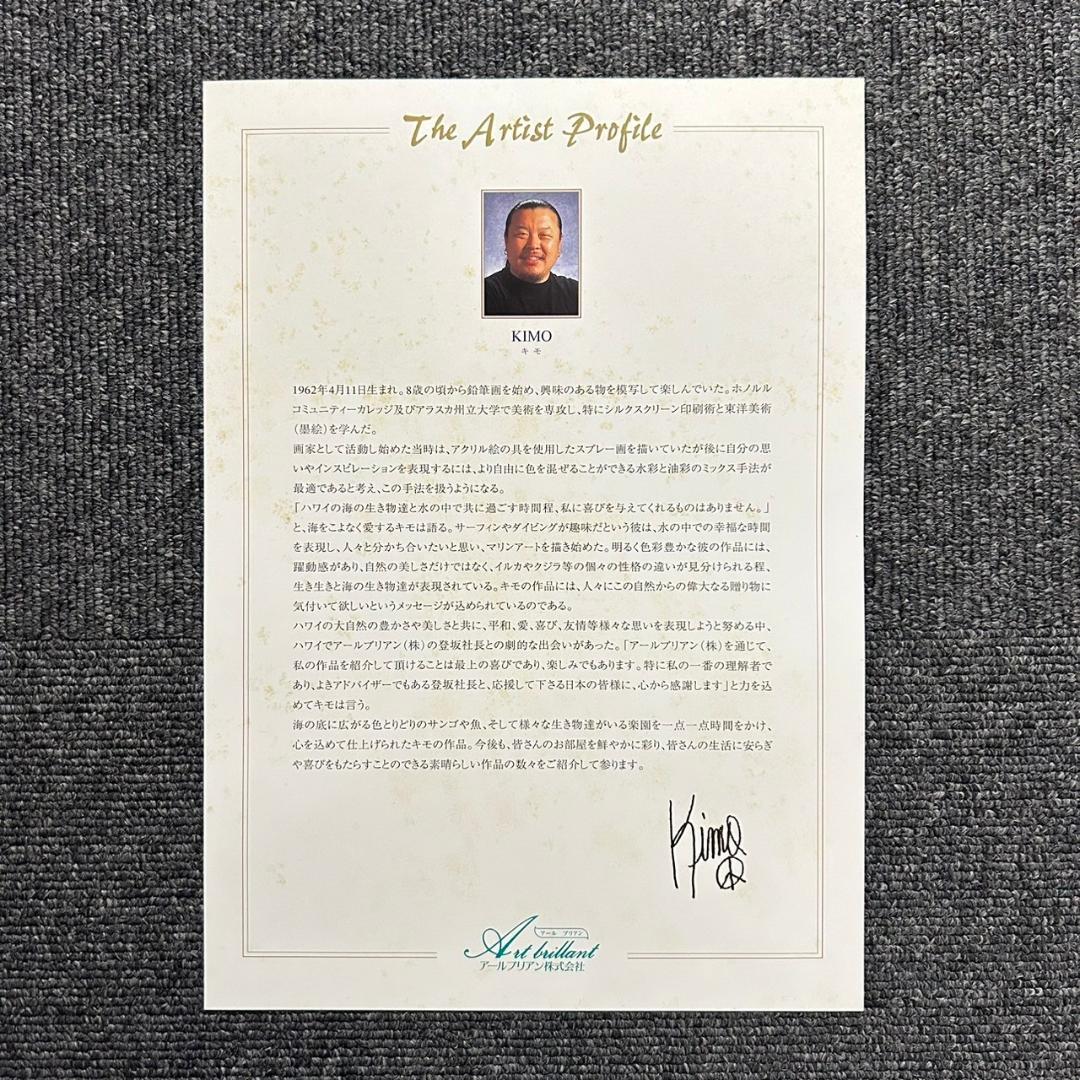 The Artist Profile
KIMO
キモ
1962年4月11日生まれ。8歳の頃から鉛筆画を始め、興味のある物を模写して楽しんでいた。ホノルル
コミュニティーカレッジ及びアラスカ州立大学で美術を専攻し、特にシルクスクリーン印刷術と東洋美術
（墨絵）を学んだ。
画家として活動し始めた当時は、アクリル絵の具を使用したスプレー画を描いていたが後に自分の思
いやインスピレーションを表現するには、より自由に色を混ぜることができる水彩と油彩のミックス手法が
最適であると考え、この手法を扱うようになる。
「ハワイの海の生き物達と水の中で共に過ごす時間程、私に喜びを与えてくれるものはありません。」
と、海をこよなく愛するキモは語る。サーフィンやダイビングが趣味だという彼は、水の中での幸福な時間
を表現し、人々と分かち合いたいと思い、マリンアートを描き始めた。明るく色彩豊かな彼の作品には、
躍動感があり、自然の美しさだけではなく、イルカやクジラ等の個々の性格の違いが見分けられる程、
生き生きと海の生き物達が表現されている。キモの作品には、人々にこの自然からの偉大なる贈り物に
気付いて欲しいというメッセージが込められているのである。
ハワイの大自然の豊かさや美しさと共に、平和、愛、喜び、友情等様々な思いを表現しようと努める中、
ハワイでアールブリアン（株）の登坂社長との劇的な出会いがあった。「アールブリアン（株）を通じて、
私の作品を紹介して頂けることは最上の喜びであり、楽しみでもあります。特に私の一番の理解者で
あり、よきアドバイザーでもある登坂社長と、応援して下さる日本の皆様に、心から感謝します」と力を込
めてキモは言う。
海の底に広がる色とりどりのサンゴや魚、そして様々な生き物達がいる楽園を一点一点時間をかけ、
心を込めて仕上げられたキモの作品。今後も、皆さんのお部屋を鮮やかに彩り、皆さんの生活に安らぎ
や喜びをもたらすことのできる素晴らしい作品の数々をご紹介して参ります。
Kimo
アール ブリアン
Art brillant
アールブリアン株式会社